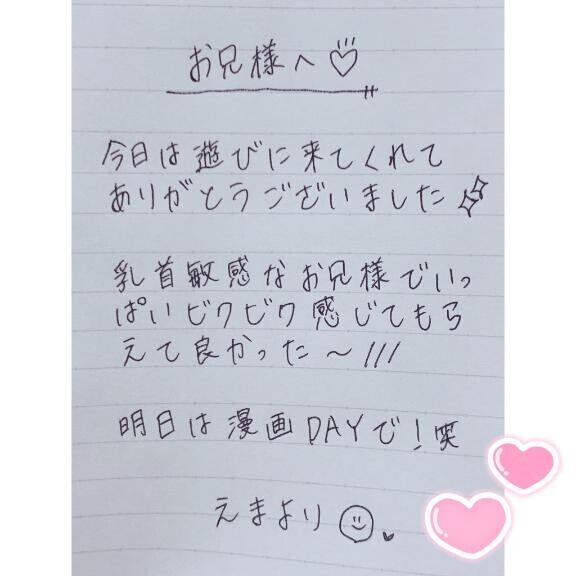 お兄様へ♡
今日は遊びに来てくれて
ありがとうございました
乳首敏感なお兄様でいっ
ぱいビクビク感じてもら
えて良かった〜///
明日は漫画DAYで!笑
えまより